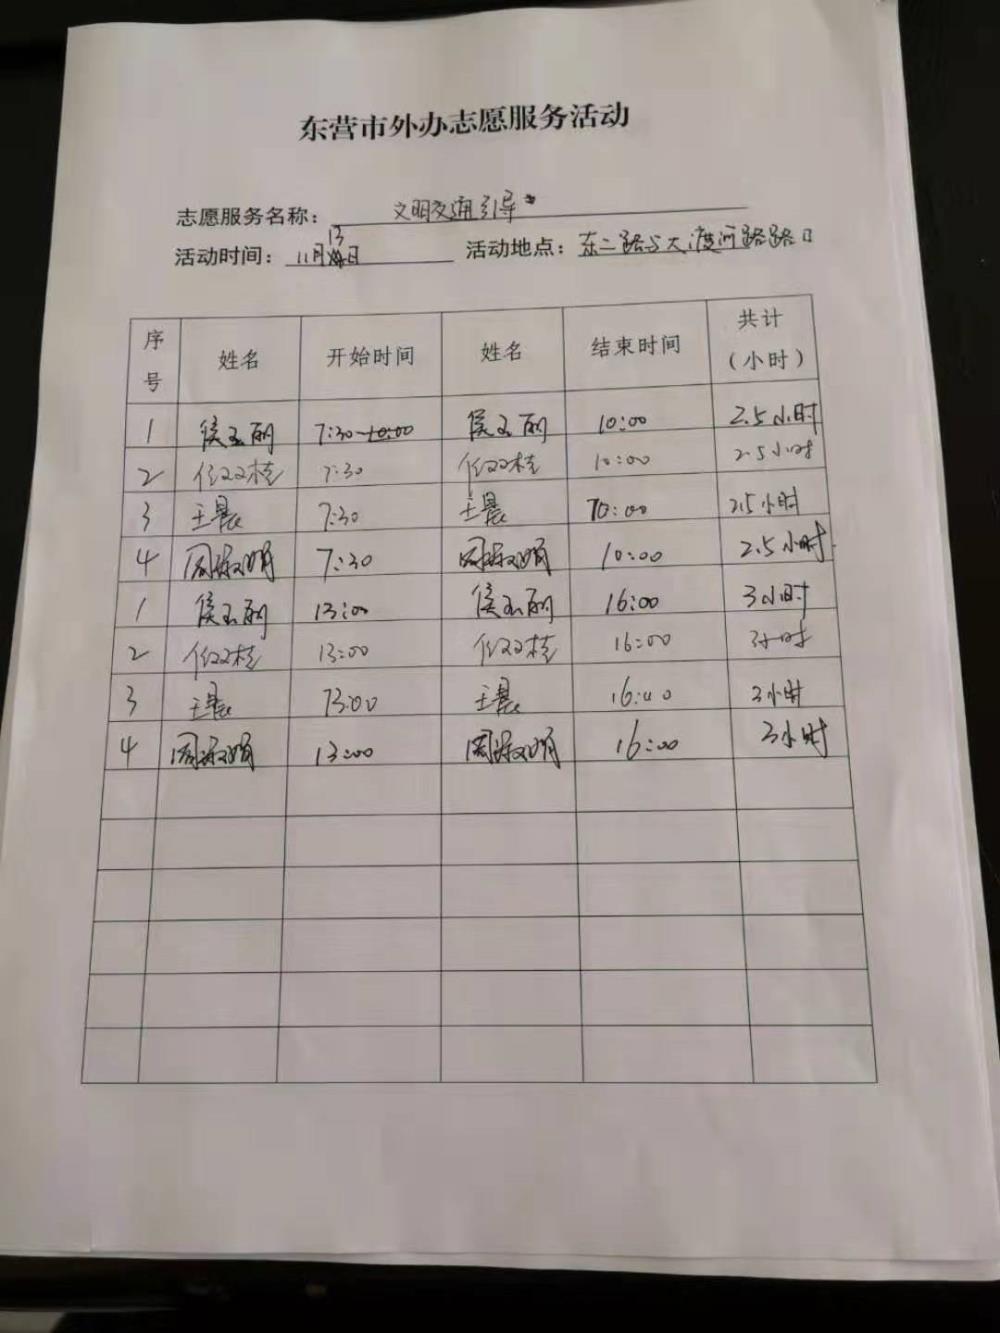 东营市外办志愿服务活动
志愿服务名称：文明交通引导
活动时间：11月13日 活动地点：东二路与大渡河路路口
序号 姓名 开始时间 姓名 结束时间 共计（小时）
1 侯玉丽 7:30 侯玉丽 10:00 2.5小时
2 任双桂 7:30 任双桂 10:00 2.5小时
3 王晨 7:30 王晨 10:00 2.5小时
4 周 7:30 周 10:00 2.5小时
1 侯玉丽 13:00 侯玉丽 16:00 3小时
2 任双桂 13:00 任双桂 16:00 3小时
3 王晨 13:00 王晨 16:00 3小时
4 周 13:00 周 16:00 3小时